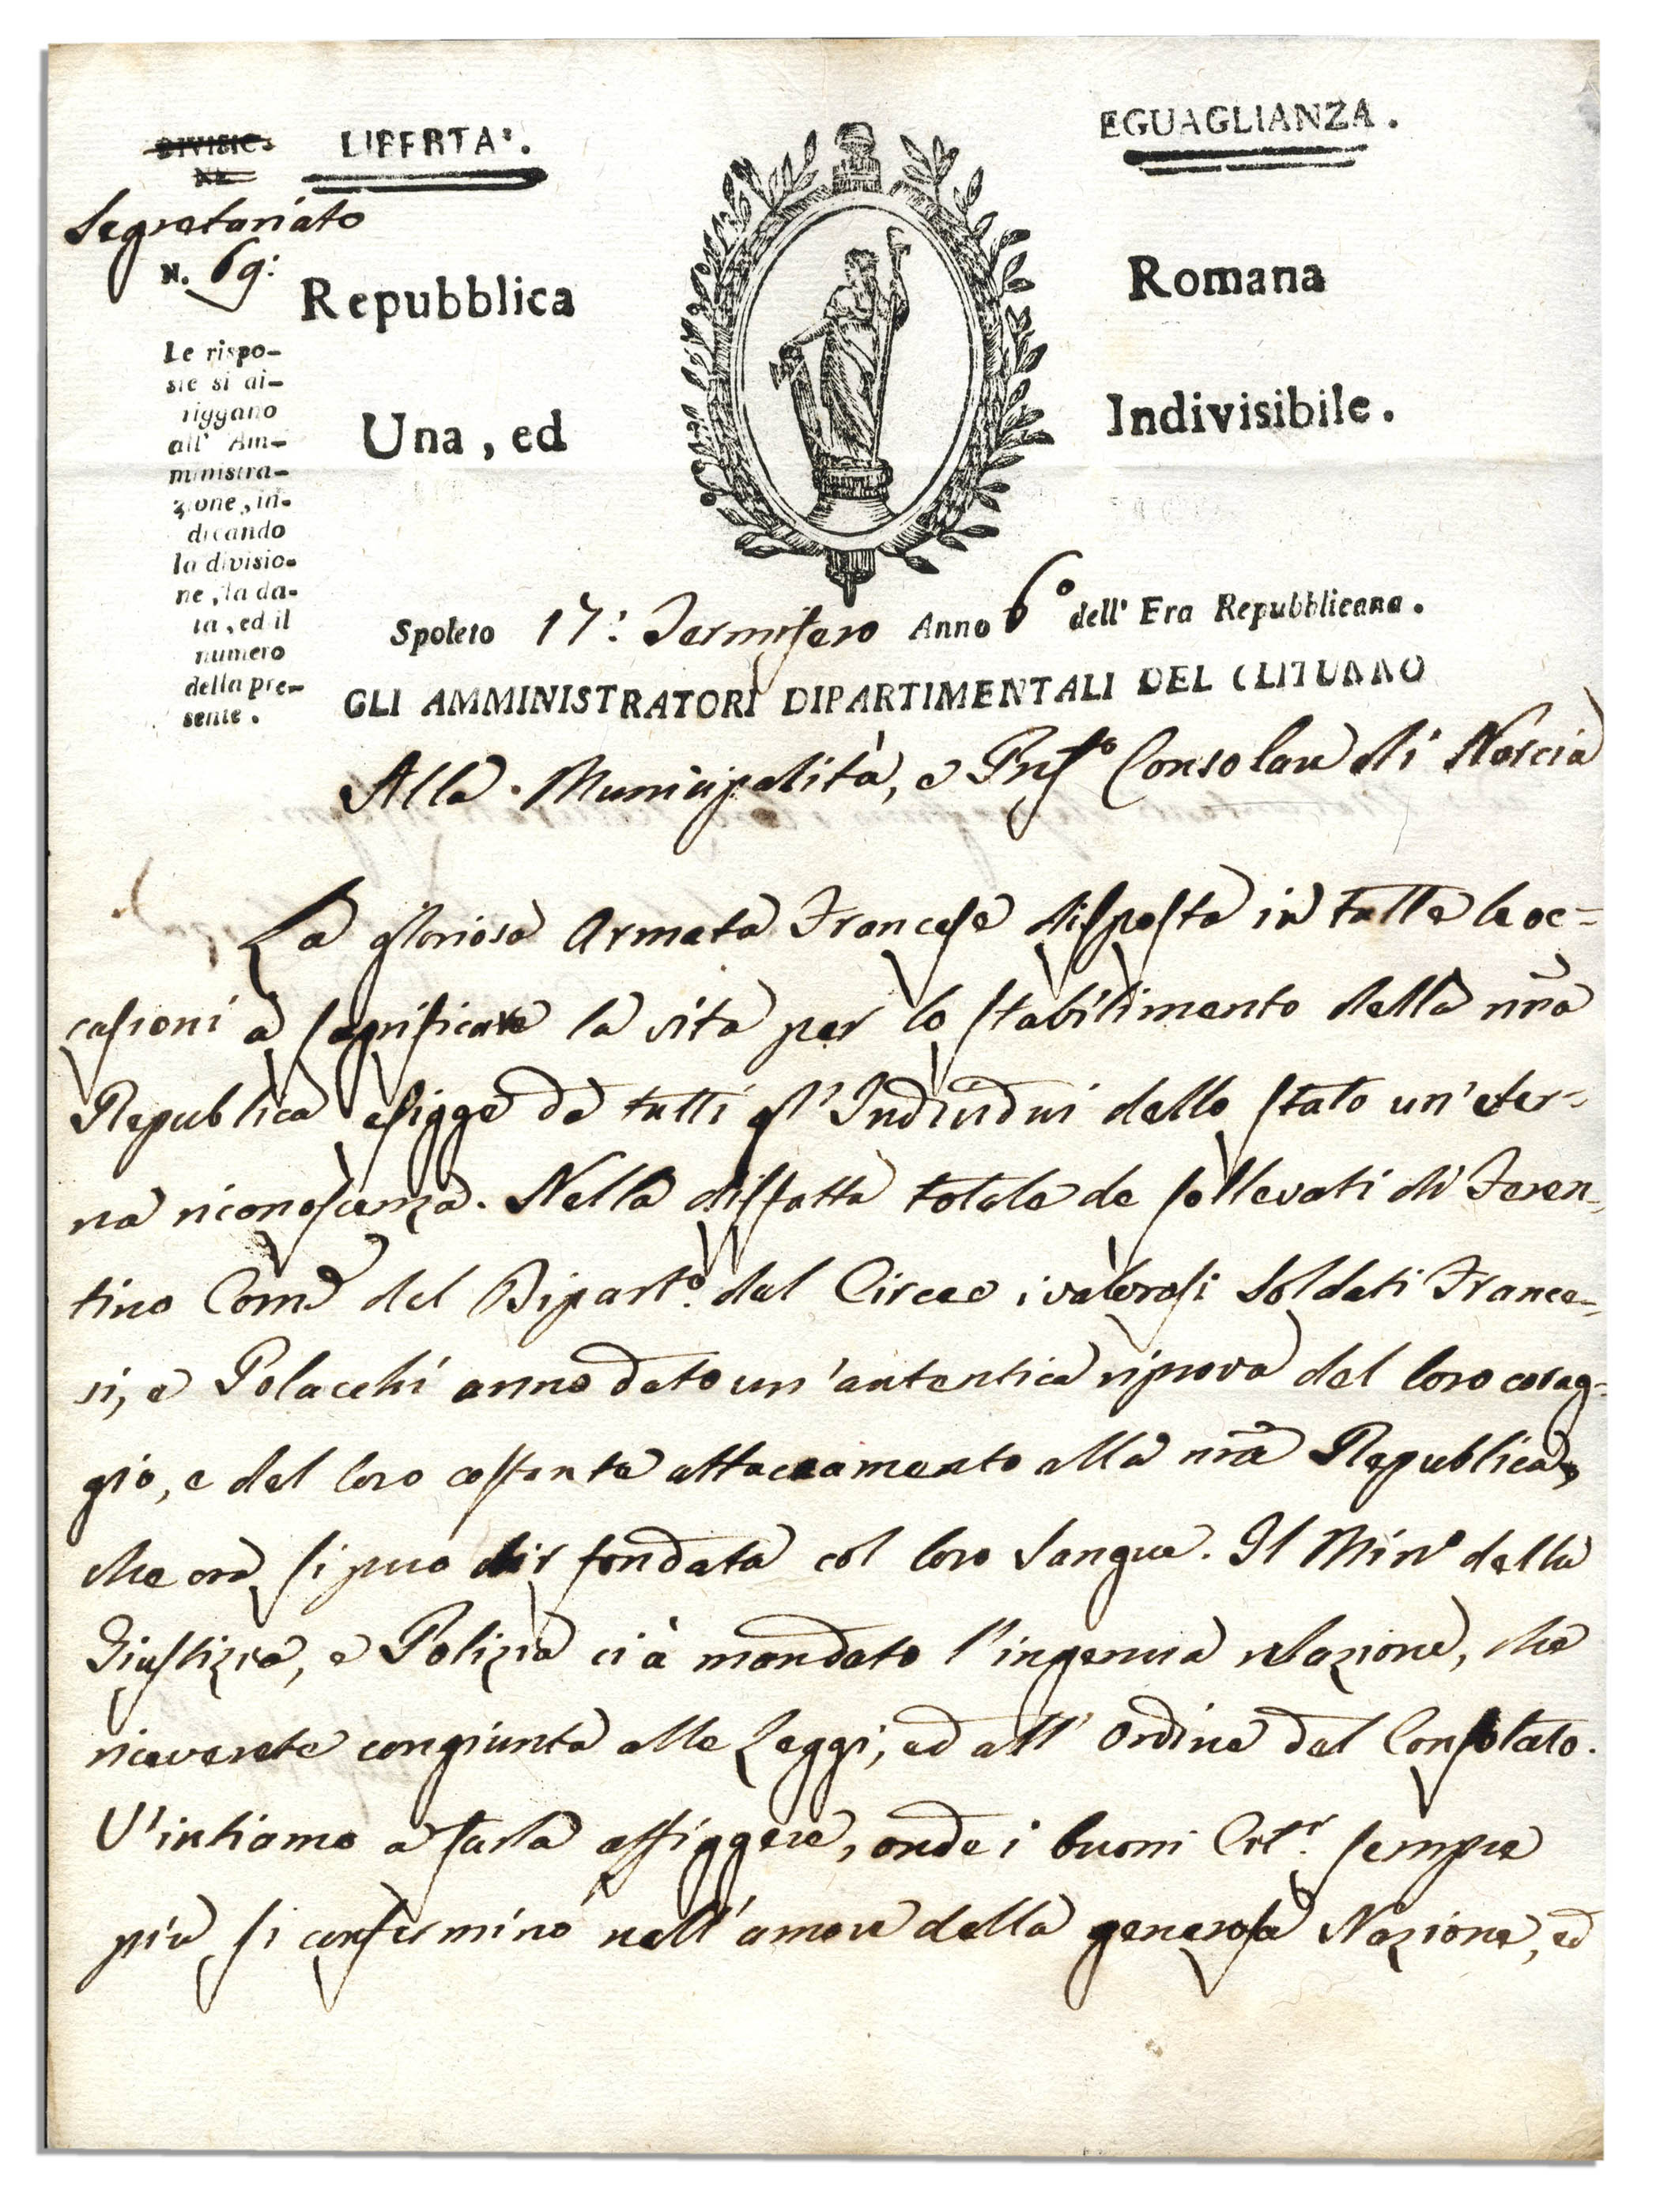 LIBERTA'.
EGUAGLIANZA.
DIVISIO-
NE
Segretariato
N. 69:
Repubblica Romana
Una, ed Indivisibile.
Le rispo-
ste si di-
riggano
all' Am-
ministra-
zione, in-
dicando
la divisio-
ne, la da-
ta, ed il
numero
della pre-
sente.
Spoleto 17: Termifero Anno 6º dell' Era Repubblicana.
GLI AMMINISTRATORI DIPARTIMENTALI DEL CLITUNNO
Alla Municipalità, e Prefº Consolare di Norcia
La gloriosa Armata Francese disposta in tutte le oc=
casioni a sagrificare la vita per lo stabilimento della nrã
Republica esigge da tutti gl'Individui dello stato un'eter=
na riconoscenza. Nella disfatta totale de sollevati di Feren-
tino Com̃e del Dipartº. del Circeo i valorosi Soldati France-
si, e Polacchi anno dato un'autentica riprova del loro corag=
gio, e del loro costante attaccamento alla nrã Republica,
che ora si puo dir fondata col loro Sangue. Il Minº della
Giustizia, e Polizia ci à mandato l'ingenua relazione, che
riceverete congiunta alle Leggi, ed all' ordine del Consolato.
V'intiamo a farla affiggere, onde i buoni Citt:ⁱ sempre
più si confermino nell'amore della generosa Nazione, ed